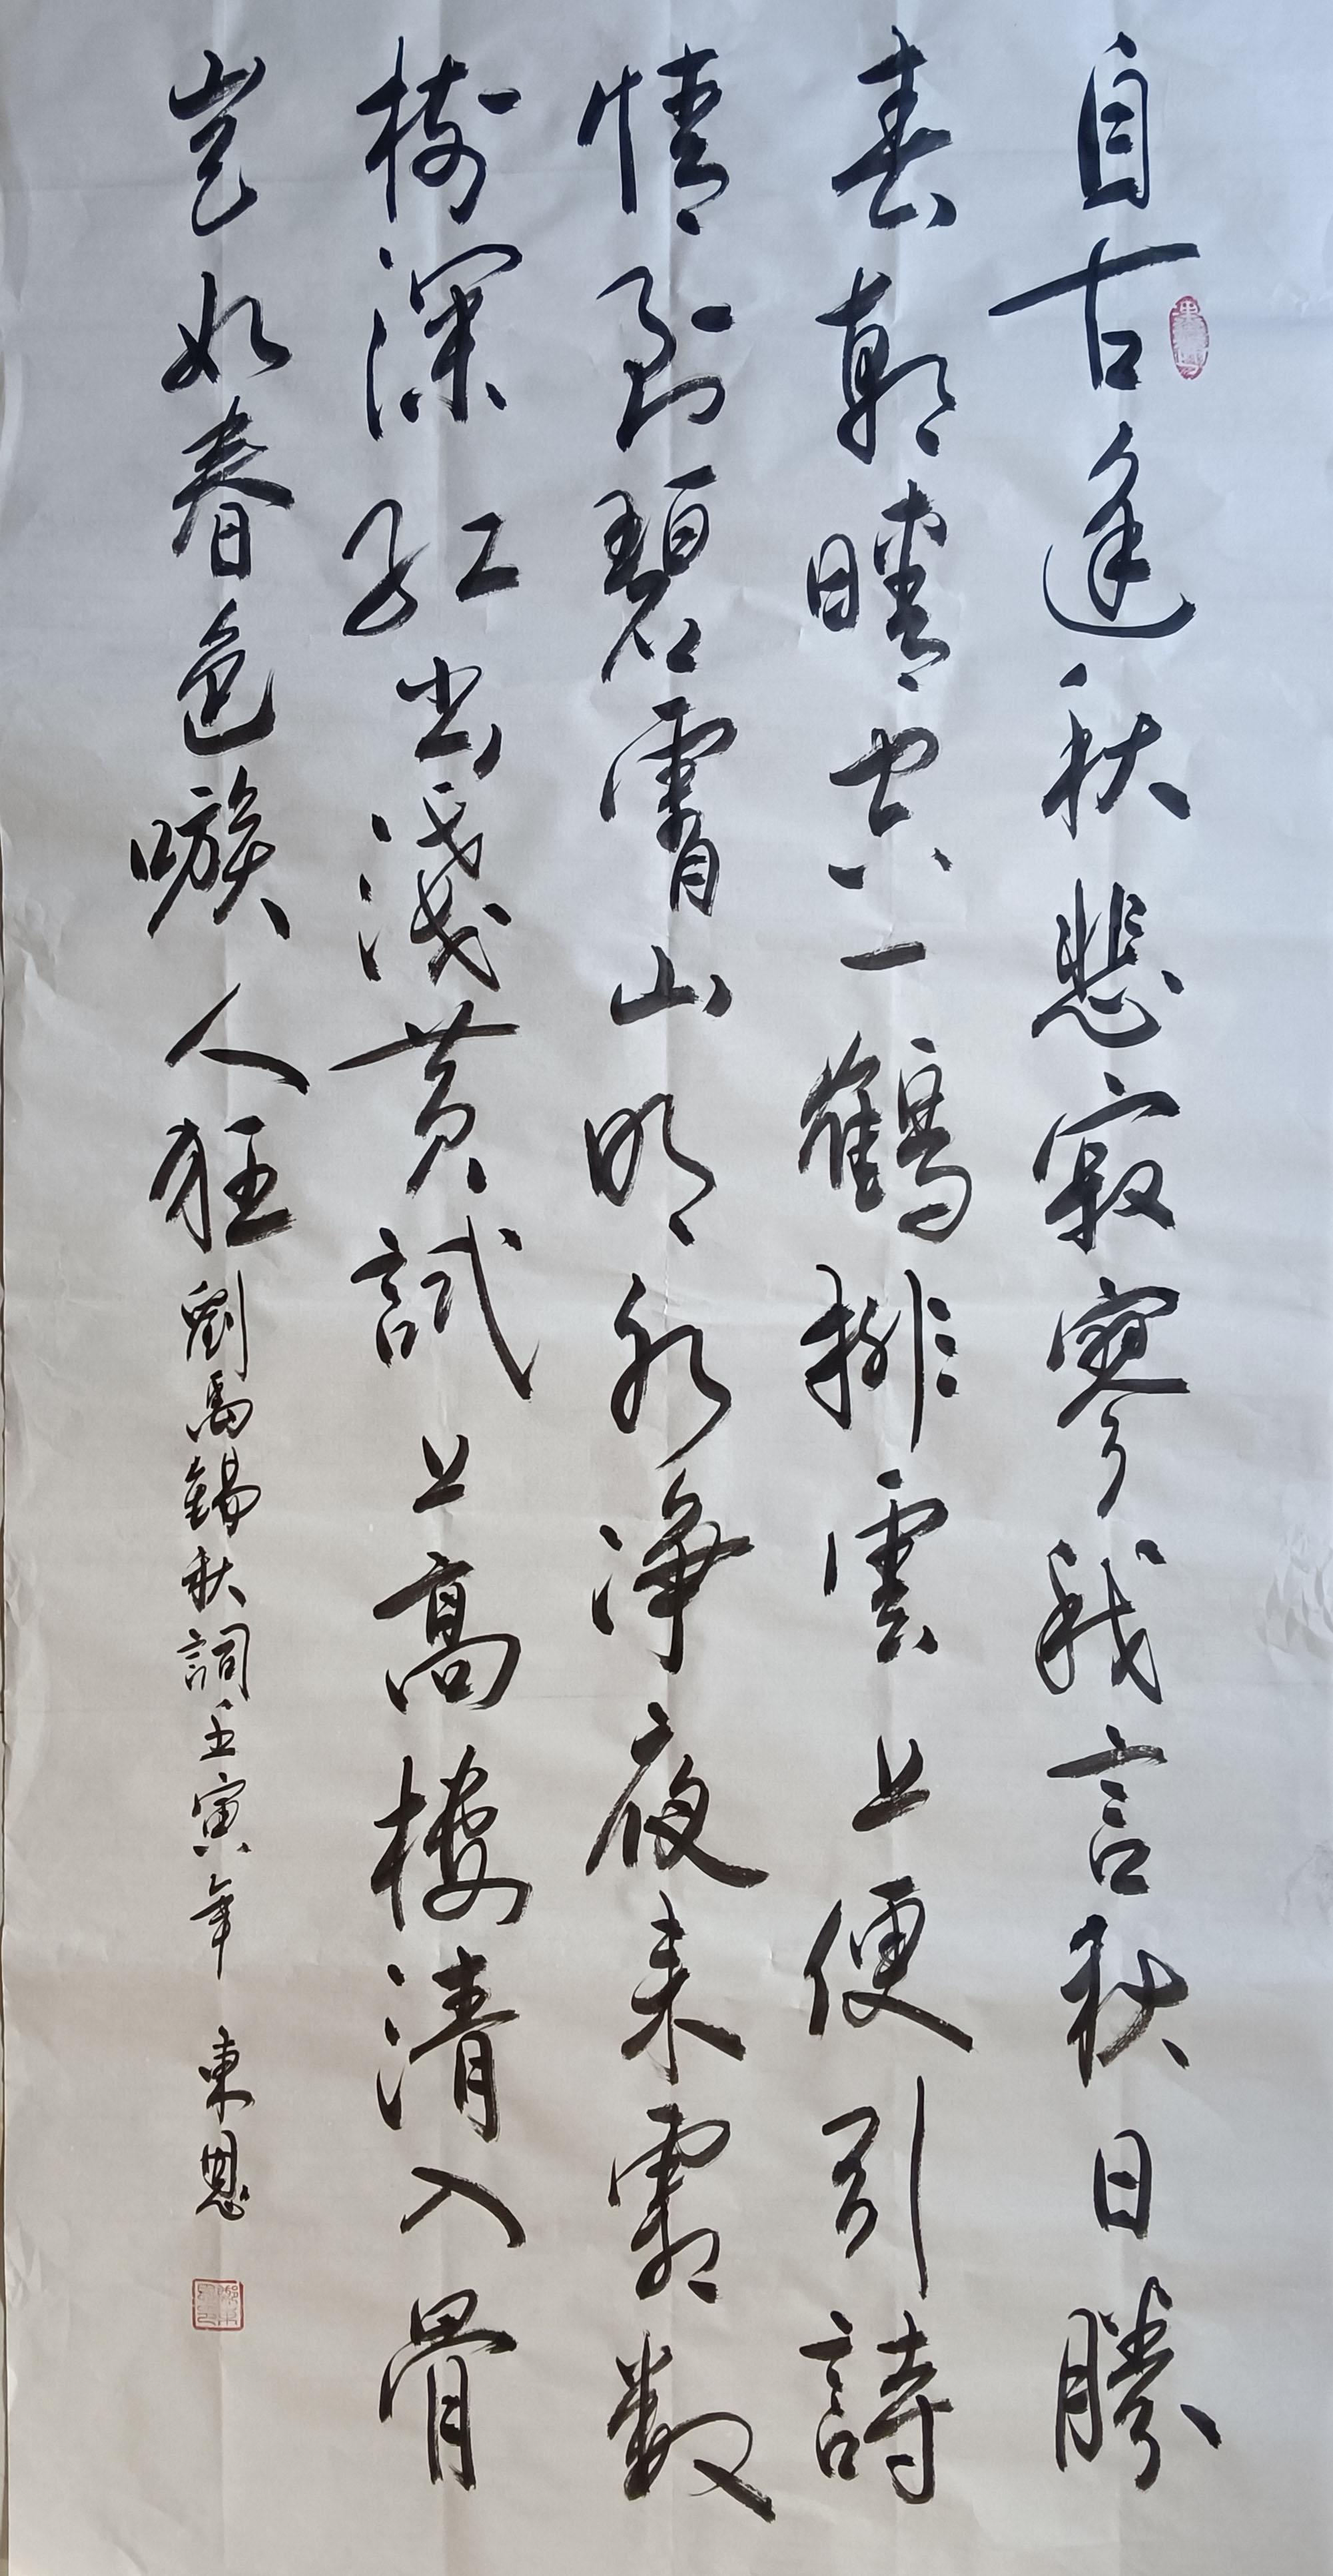 自古逢秋悲寂寥我言秋日勝
春朝晴空一鶴排雲上便引詩
情到碧霄山明水淨夜來霜數
樹深紅出淺黃試上高樓清入骨
豈如春色嗾人狂 劉禹錫秋詞壬寅年 東恩